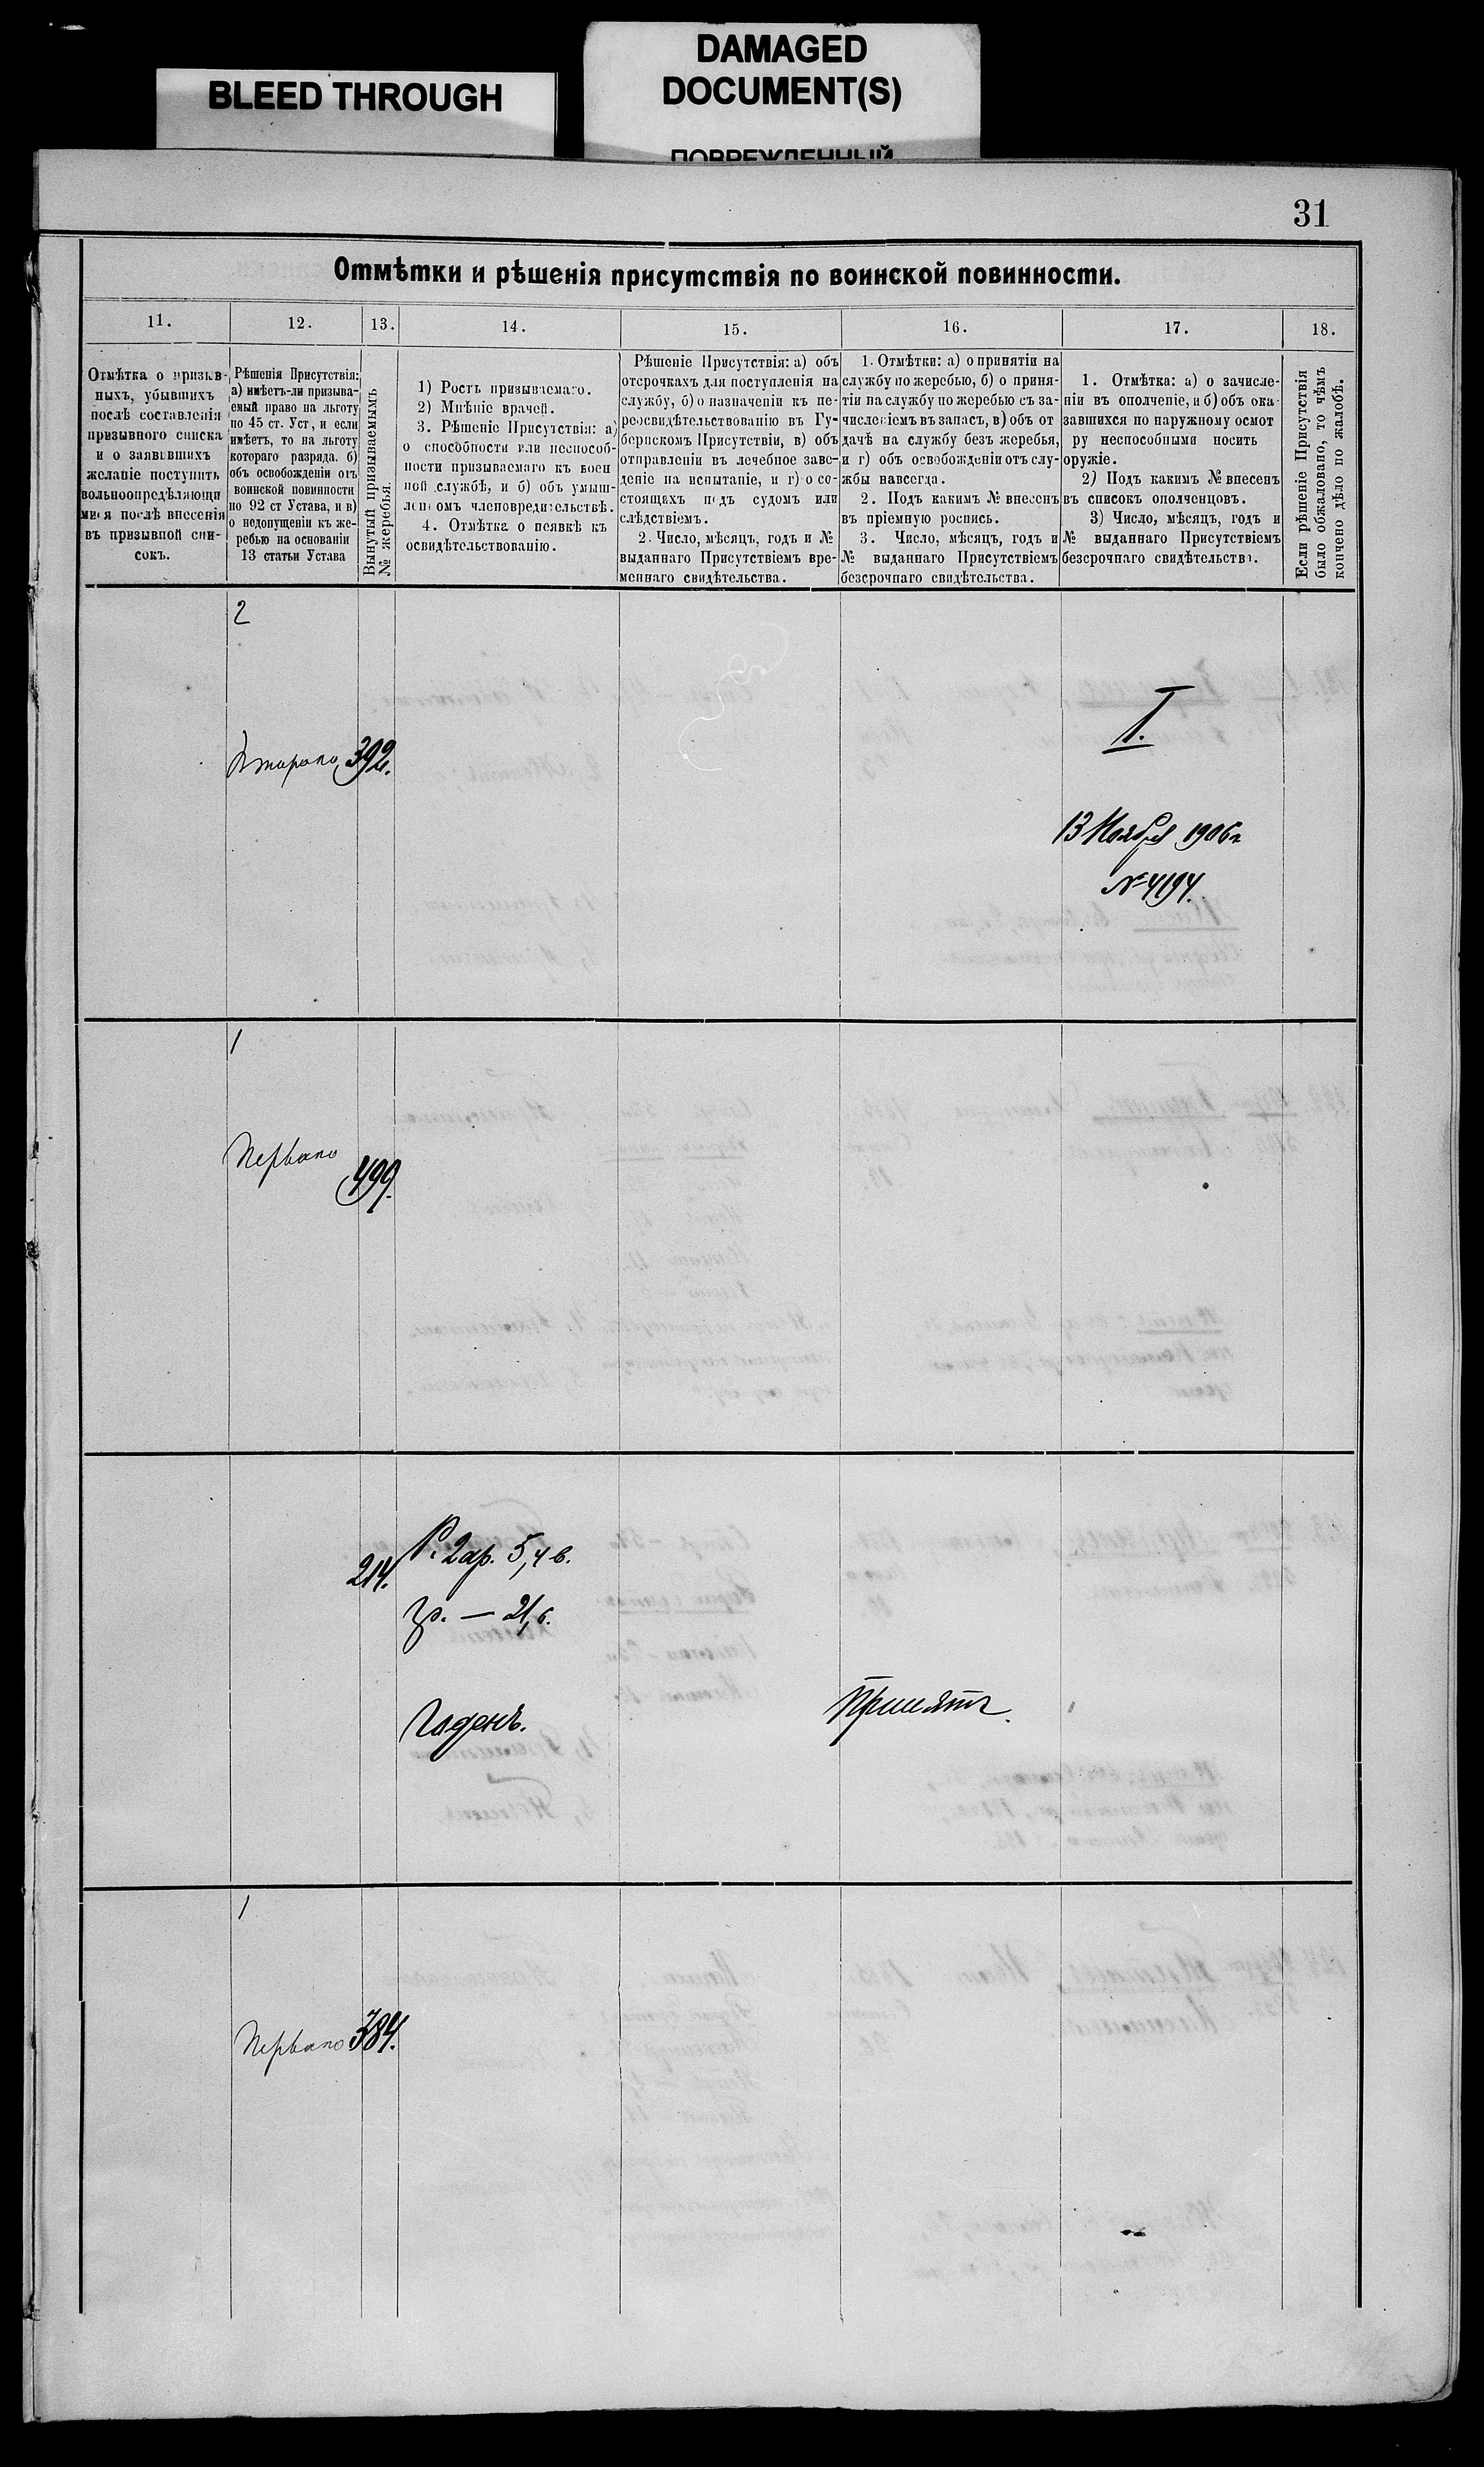 BLEED THROUGH
DAMAGED
DOCUMENT(S)
ПОВРЕЖДЕННЫЙ
31
Отмѣтки и рѣшенія присутствія по воинской повинности.
11.
12.
13.
14.
15.
16.
17.
18.
Отмѣтка о призыв-
ныхъ, убывшихъ
послѣ составленія
призывного списка
и о заявившихъ
желаніе поступить
вольноопредѣляющи
мися послѣ внесенія
въ призывной спи-
сокъ.
Рѣшенія Присутствія:
а) имѣетъ-ли призыва-
емый право на льготу
по 45 ст. Уст, и если
имѣетъ, то на льготу
котораго разряда. б)
объ освобожденіи отъ
воинской повинности
по 92 ст Устава, и в)
о недопущеніи къ же-
ребью на основаніи
13 статьи Устава
Вынутый призываемымъ
№ жеребья.
1) Ростъ призываемаго.
2) Мнѣніе врачей.
3. Рѣшеніе Присутствія: а)
о способности или неспособ-
ности призываемаго къ воен
ной службѣ, и б) объ умыш-
леномъ членовредительствѣ.
4. Отмѣтка о неявкѣ къ
освидѣтельствованію.
Рѣшеніе Присутствія: а) объ
отсрочкахъ для поступленія на
службу, б) о назначеніи къ пе-
реосвидѣтельствованію въ Гу-
бернскомъ Присутствіи, в) объ
отправленіи въ лечебное заве-
деніе на испытаніе, и г) о со-
стоящахъ подъ судомъ или
слѣдствіемъ.
2. Число, мѣсяцъ, годъ и №
выданнаго Присутствіемъ вре-
меннаго свидѣтельства.
1. Отмѣтки: а) о принятіи на
службу по жеребью, б) о приня-
тіи на службу по жеребью съ за-
численіемъ въ запасъ, в) объ от
дачѣ на службу безъ жеребья,
и г) объ освобожденіи отъ слу-
жбы навсегда.
2. Подъ какимъ № внесенъ
въ пріемную роспись.
3. Число, мѣсяцъ, годъ и
№ выданнаго Присутствіемъ
безсрочнаго свидѣтельства.
1. Отмѣтка: а) о зачисле-
ніи въ ополченіе, и б) объ ока-
завшихся по наружному осмот
ру неспособными носить
оружіе.
2) Подъ какимъ № внесенъ
въ списокъ ополченцовъ.
3) Число, мѣсяцъ, годъ и
№ выданнаго Присутствіемъ
безсрочнаго свидѣтельства.
Если рѣшеніе Присутствія
было обжаловано, то чѣмъ
кончено дѣло по жалобѣ.
2
Второго 392.
I.
13 Ноября 1906 г
№ 4194.
1
Перваго
499.
214.
Р. 2 ар. 5,4 в.
гр. — 21, в.
Годенъ.
Принятъ.
1
Перваго 384.